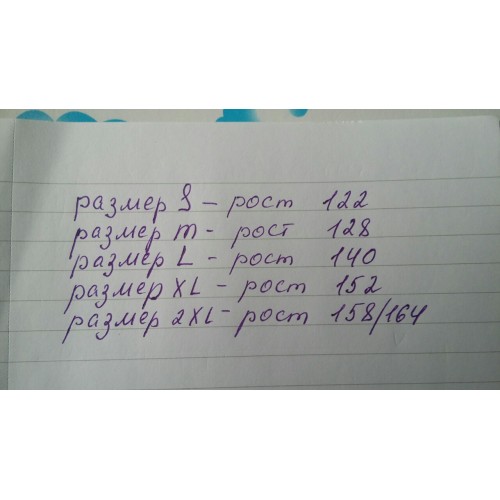 размер S – рост 122
размер m – рост 128
размер L – рост 140
размер XL – рост 152
размер 2XL – рост 158/164